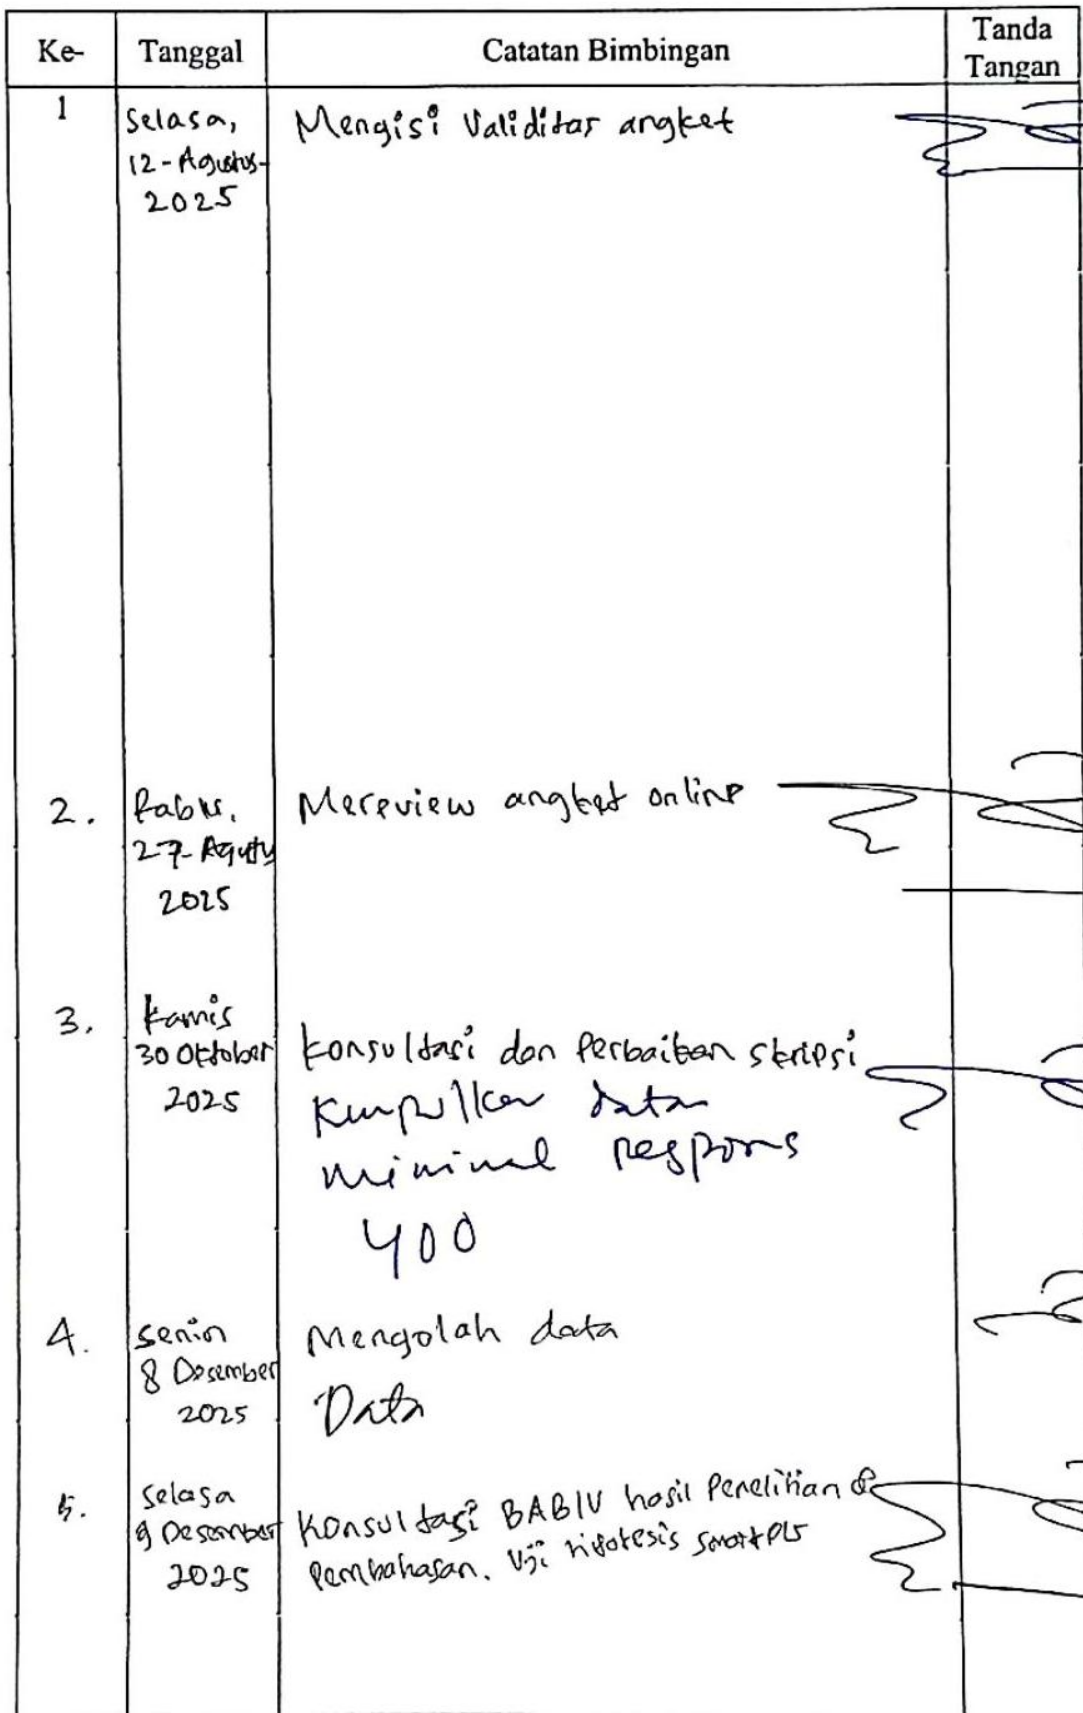 Ke-
Tanggal
Catatan Bimbingan
Tanda
Tangan
1
Selasa,
12-Agustus-
2025
Mengisi Validitas angket
2.
Rabu,
27-Agustus
2025
Mereview angket online
3.
Kamis
30 Oktober
2025
Konsultasi dan Perbaikan skripsi
Kumpulkan data
minimal respons
400
4.
Senin
8 Desember
2025
Mengolah data
Data
5.
Selasa
9 Desember
2025
Konsultasi BAB IV hasil Penelitian &
Pembahasan. Uji hipotesis smartPLS